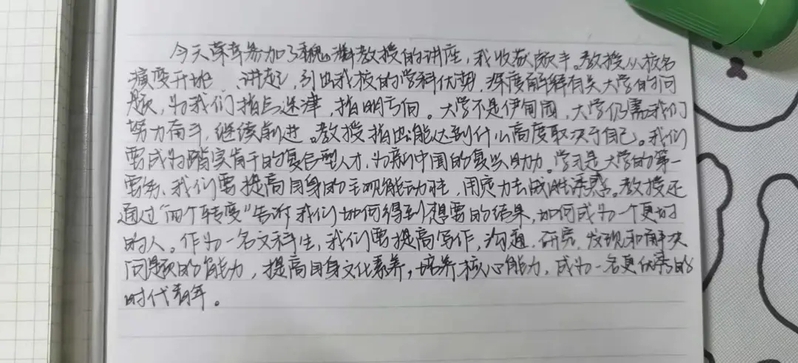 今天莘莘参加了魏 教授的讲座，我收获颇丰。教授从校名
演变开始 讲起，引出我校的学科优势，深度解释有关大学的问
题，为我们指点迷津，指明方向。大学不是伊甸园，大学仍需我们
努力奋斗，继续前进。教授指出能达到什么高度取决于自己。我们
要成为踏实肯干的复合型人才，为新中国的复兴助力。学习是大学的第一
要务，我们要提高自身的主观能动性，用定力去战胜诱惑。教授还
通过“两个转变”告诉我们如何得到想要的结果，如何成为一个更好
的人。作为一名文科生，我们要提高写作，沟通，研究，发现和解决
问题的能力，提高自身文化素养，培养核心能力，成为一名更优秀的
时代青年。